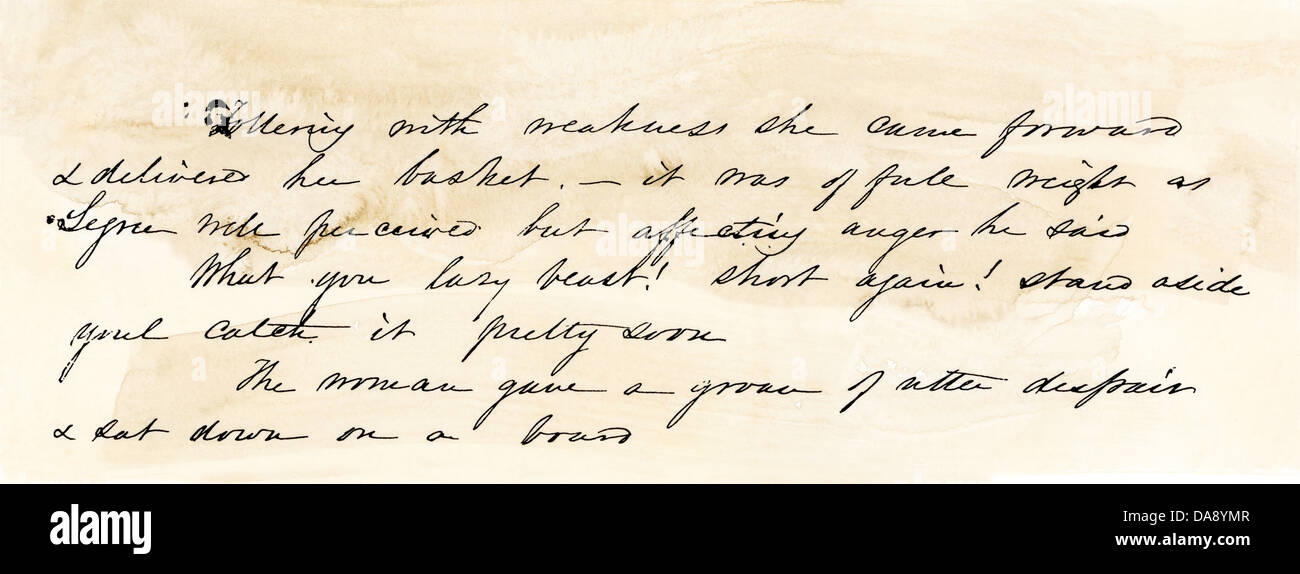 Tottering with weakness she came forward
& delivered her basket. – it was of full weight as
Legree well perceived but affecting anger he said
What you lazy beast! short again! stand aside
youl catch it pretty soon
The woman gave a groan of utter despair
& sat down on a board
alamy
alamy
alamy
alamy
alamy
Image ID: DA8YMR
www.alamy.com